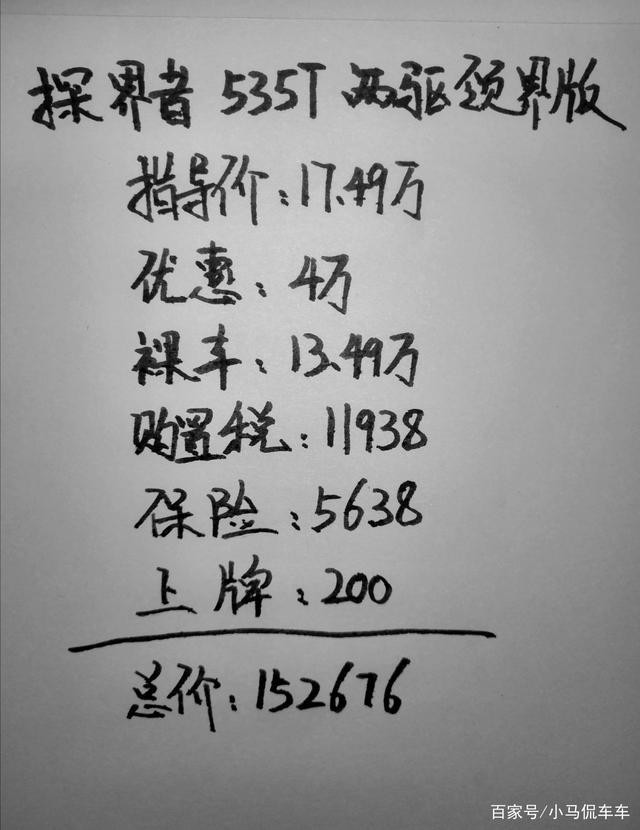 探界者 535T 两驱领界版
指导价：17.49万
优惠：4万
裸车：13.49万
购置税：11938
保险：5638
上牌：200
总价：152676
百家号/小马侃车车